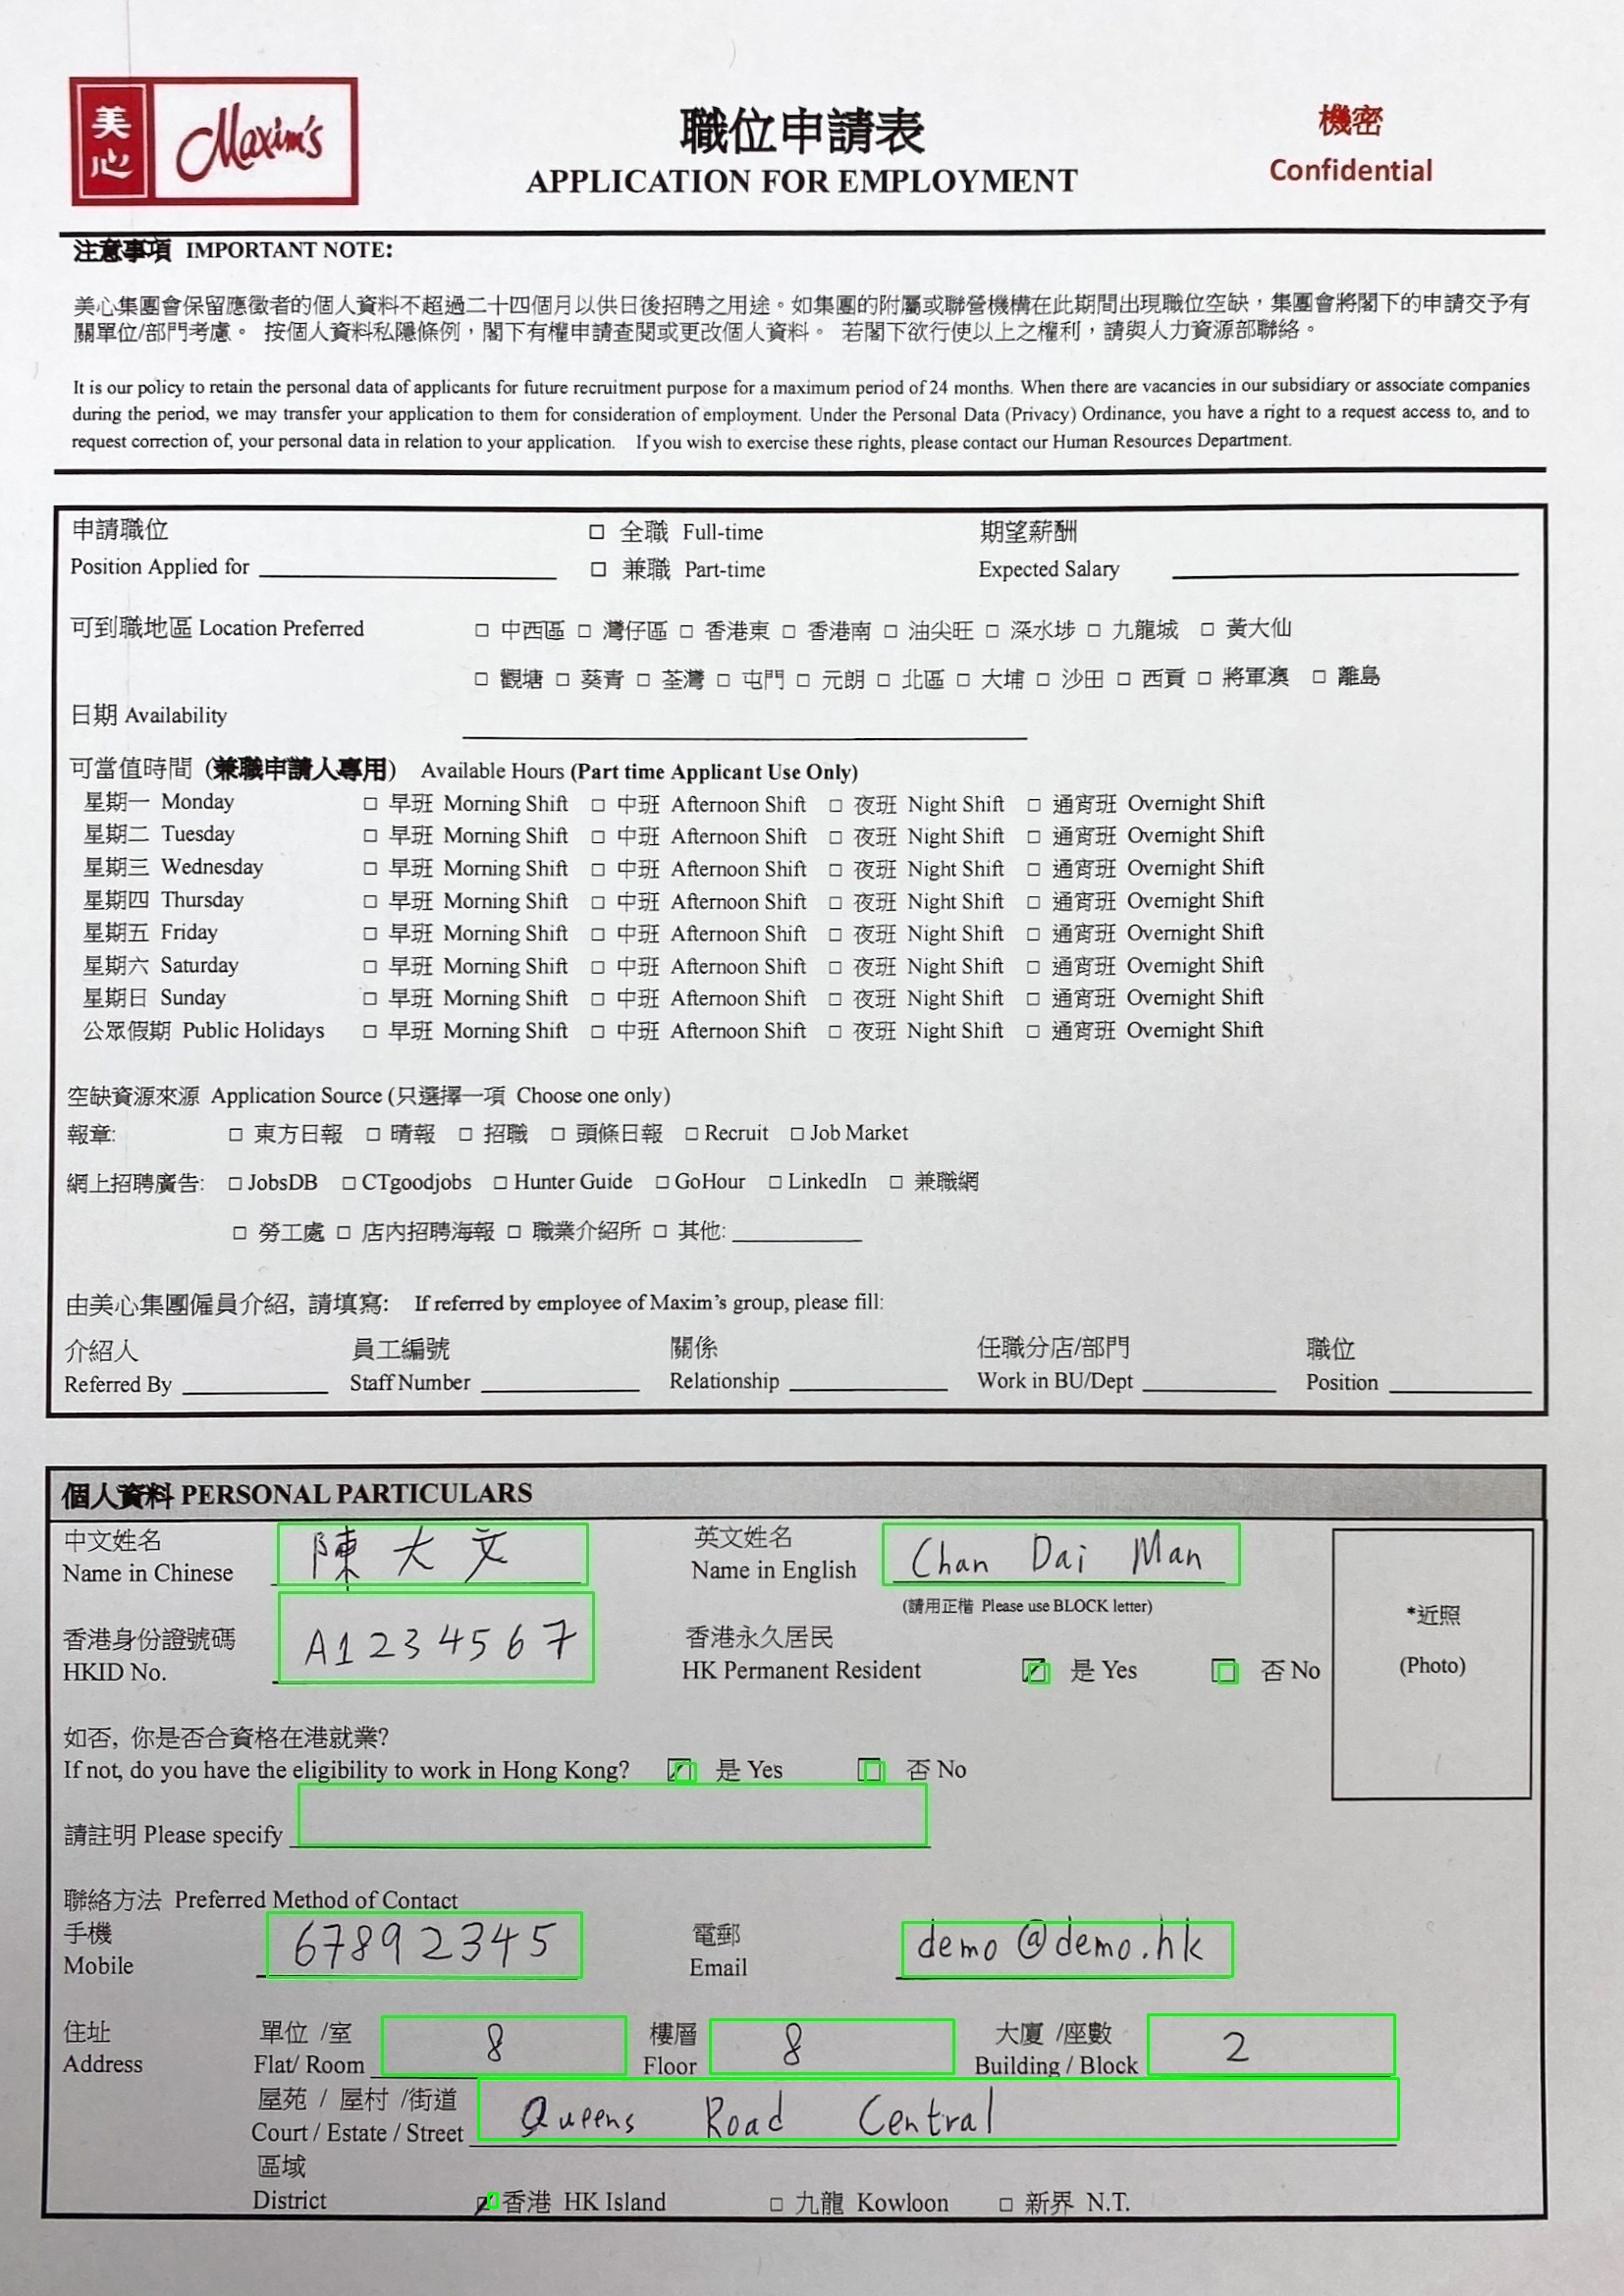 美心 Maxim's
職位申請表
APPLICATION FOR EMPLOYMENT
機密
Confidential
注意事項 IMPORTANT NOTE:
美心集團會保留應徵者的個人資料不超過二十四個月以供日後招聘之用途。如集團的附屬或聯營機構在此期間出現職位空缺，集團會將閣下的申請交予有
關單位/部門考慮。 按個人資料私隱條例，閣下有權申請查閱或更改個人資料。 若閣下欲行使以上之權利，請與人力資源部聯絡。
It is our policy to retain the personal data of applicants for future recruitment purpose for a maximum period of 24 months. When there are vacancies in our subsidiary or associate companies
during the period, we may transfer your application to them for consideration of employment. Under the Personal Data (Privacy) Ordinance, you have a right to a request access to, and to
request correction of, your personal data in relation to your application. If you wish to exercise these rights, please contact our Human Resources Department.
申請職位 □ 全職 Full-time 期望薪酬
Position Applied for □ 兼職 Part-time Expected Salary
可到職地區 Location Preferred □ 中西區 □ 灣仔區 □ 香港東 □ 香港南 □ 油尖旺 □ 深水埗 □ 九龍城 □ 黃大仙
□ 觀塘 □ 葵青 □ 荃灣 □ 屯門 □ 元朗 □ 北區 □ 大埔 □ 沙田 □ 西貢 □ 將軍澳 □ 離島
日期 Availability
可當值時間 (兼職申請人專用) Available Hours (Part time Applicant Use Only)
星期一 Monday □ 早班 Morning Shift □ 中班 Afternoon Shift □ 夜班 Night Shift □ 通宵班 Overnight Shift
星期二 Tuesday □ 早班 Morning Shift □ 中班 Afternoon Shift □ 夜班 Night Shift □ 通宵班 Overnight Shift
星期三 Wednesday □ 早班 Morning Shift □ 中班 Afternoon Shift □ 夜班 Night Shift □ 通宵班 Overnight Shift
星期四 Thursday □ 早班 Morning Shift □ 中班 Afternoon Shift □ 夜班 Night Shift □ 通宵班 Overnight Shift
星期五 Friday □ 早班 Morning Shift □ 中班 Afternoon Shift □ 夜班 Night Shift □ 通宵班 Overnight Shift
星期六 Saturday □ 早班 Morning Shift □ 中班 Afternoon Shift □ 夜班 Night Shift □ 通宵班 Overnight Shift
星期日 Sunday □ 早班 Morning Shift □ 中班 Afternoon Shift □ 夜班 Night Shift □ 通宵班 Overnight Shift
公眾假期 Public Holidays □ 早班 Morning Shift □ 中班 Afternoon Shift □ 夜班 Night Shift □ 通宵班 Overnight Shift
空缺資源來源 Application Source (只選擇一項 Choose one only)
報章: □ 東方日報 □ 晴報 □ 招職 □ 頭條日報 □ Recruit □ Job Market
網上招聘廣告: □ JobsDB □ CTgoodjobs □ Hunter Guide □ GoHour □ LinkedIn □ 兼職網
□ 勞工處 □ 店內招聘海報 □ 職業介紹所 □ 其他:
由美心集團僱員介紹, 請填寫: If referred by employee of Maxim's group, please fill:
介紹人 員工編號 關係 任職分店/部門 職位
Referred By Staff Number Relationship Work in BU/Dept Position
個人資料 PERSONAL PARTICULARS
中文姓名 英文姓名
Name in Chinese 陳大文 Name in English Chan Dai Man
(請用正楷 Please use BLOCK letter)
*近照
(Photo)
香港身份證號碼 香港永久居民
HKID No. A1234567 HK Permanent Resident ☑ 是 Yes □ 否 No
如否, 你是否合資格在港就業?
If not, do you have the eligibility to work in Hong Kong? ☑ 是 Yes □ 否 No
請註明 Please specify
聯絡方法 Preferred Method of Contact
手機 電郵
Mobile 67892345 Email demo@demo.hk
住址 單位 /室 樓層 大廈 /座數
Address Flat/ Room 8 Floor 8 Building / Block 2
屋苑 / 屋村 /街道
Court / Estate / Street Queens Road Central
區域
District ☑ 香港 HK Island □ 九龍 Kowloon □ 新界 N.T.